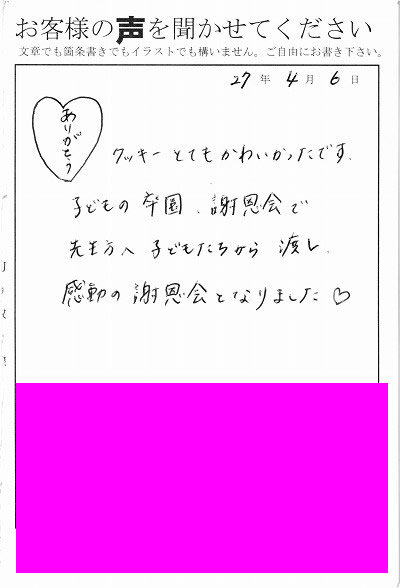 お客様の声を聞かせてください
文章でも箇条書きでもイラストでも構いません。ご自由にお書き下さい。
27年 4月 6日
ありがとう
クッキー とてもかわいかったです.
子どもの 卒園、謝恩会で
先生方へ 子どもたちから 渡し、
感動の 謝恩会となりました♡